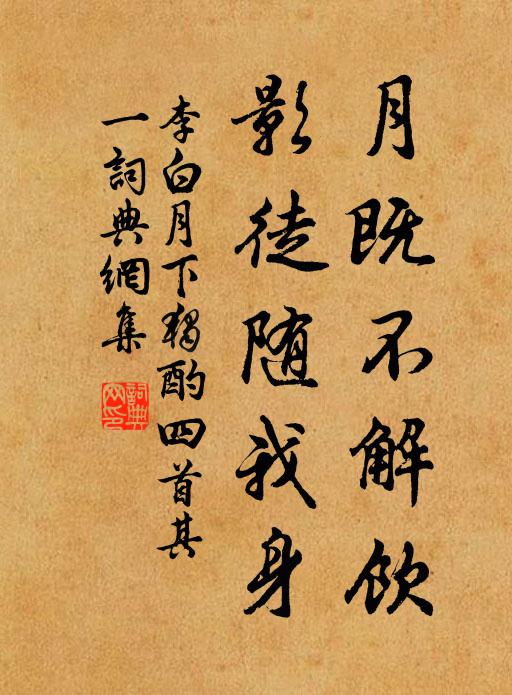 月既不解飲
影徒随我身
李白月下獨酌四首其
一詞典網集
詞典
网印